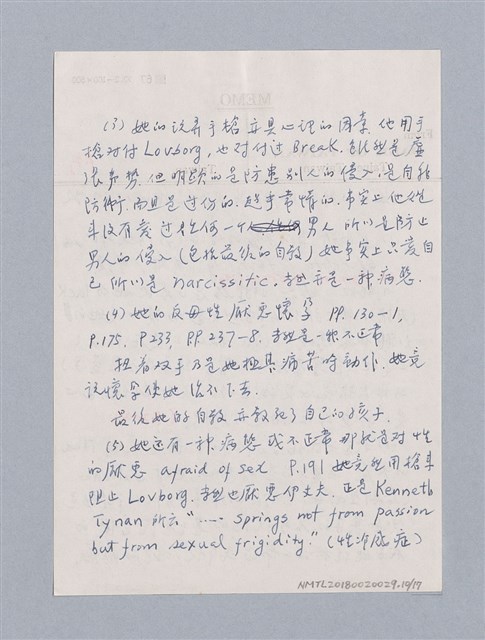 (3) 她的玩弄手槍亦具心理的因素. 他用手
槍对付 Lovborg, 也对付过 Break. 雖然是虛
張声势, 但明顯的是防患別人的侵入, 是自我
防衛, 而且是过份的. 超乎常情的. 事实上他從
来沒有爱过任何一个男人 所以是防止
男人的侵入 (包括最後的自殺) 她事实上只爱自
己 所以是 narcissitic, 當然亦是一种病態.
(4) 她的反母性 厭惡懷孕 PP. 130-1,
P.175. P.233, PP. 237-8. 當然是一种不正常
扭着双手乃是她極其痛苦的動作. 她竟
說懷孕使她活不下去.
最後她的自殺亦殺死了自己的孩子.
(5) 她还有一种病態或不正常 那就是对性
的厭惡 afraid of sex P.191 她竟然用槍来
阻止 Lovborg. 當然也厭惡伊丈夫. 正是 Kenneth
Tynan 所云 "..... springs not from passion
but from sexual frigidity." (性冷感症)
NMTL20180020029.10/17
MEMO